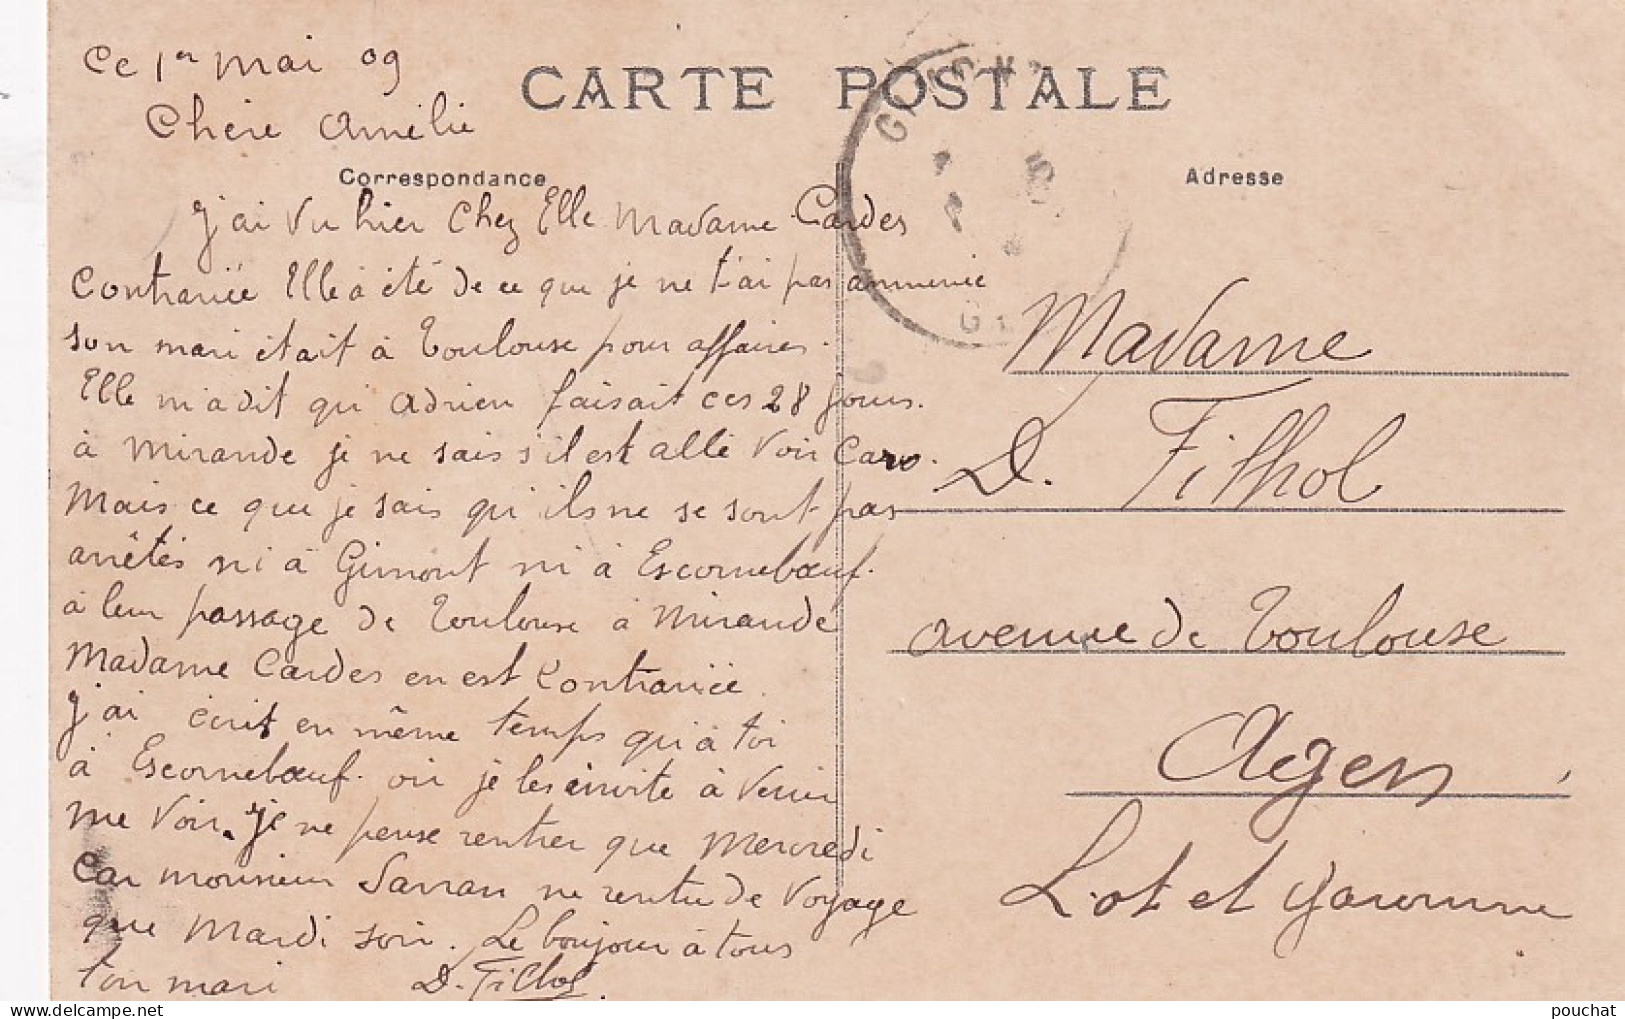 Ce 1er mai 09
CARTE POSTALE
Chère Amélie
Correspondance
j'ai vu hier chez Elle Madame Cardes
contrariée Elle a été de ce que je ne t'ai pas ammenée
son mari était à Toulouse pour affaires.
Elle m'a dit qu'Adrien faisait ces 28 jours.
à Mirande je ne sais s'il est allé voir Caro.
Mais ce que je sais qu'ils ne se sont pas
arrêtés ni à Gimont ni à Escornebœuf.
à leur passage de Toulouse à Mirande
Madame Cardes en est contrariée.
j'ai écrit en même temps qu'à toi
à Escornebœuf. où je les invite à venir
me voir. je ne pense rentrer que Mercredi
Car monsieur Sarran ne rentre de voyage
que Mardi soir. Le bonjour à tous
ton mari D. Filhol
Adresse
Madame
D. Filhol
avenue de Toulouse
Agen
Lot et Garonne
pouchat